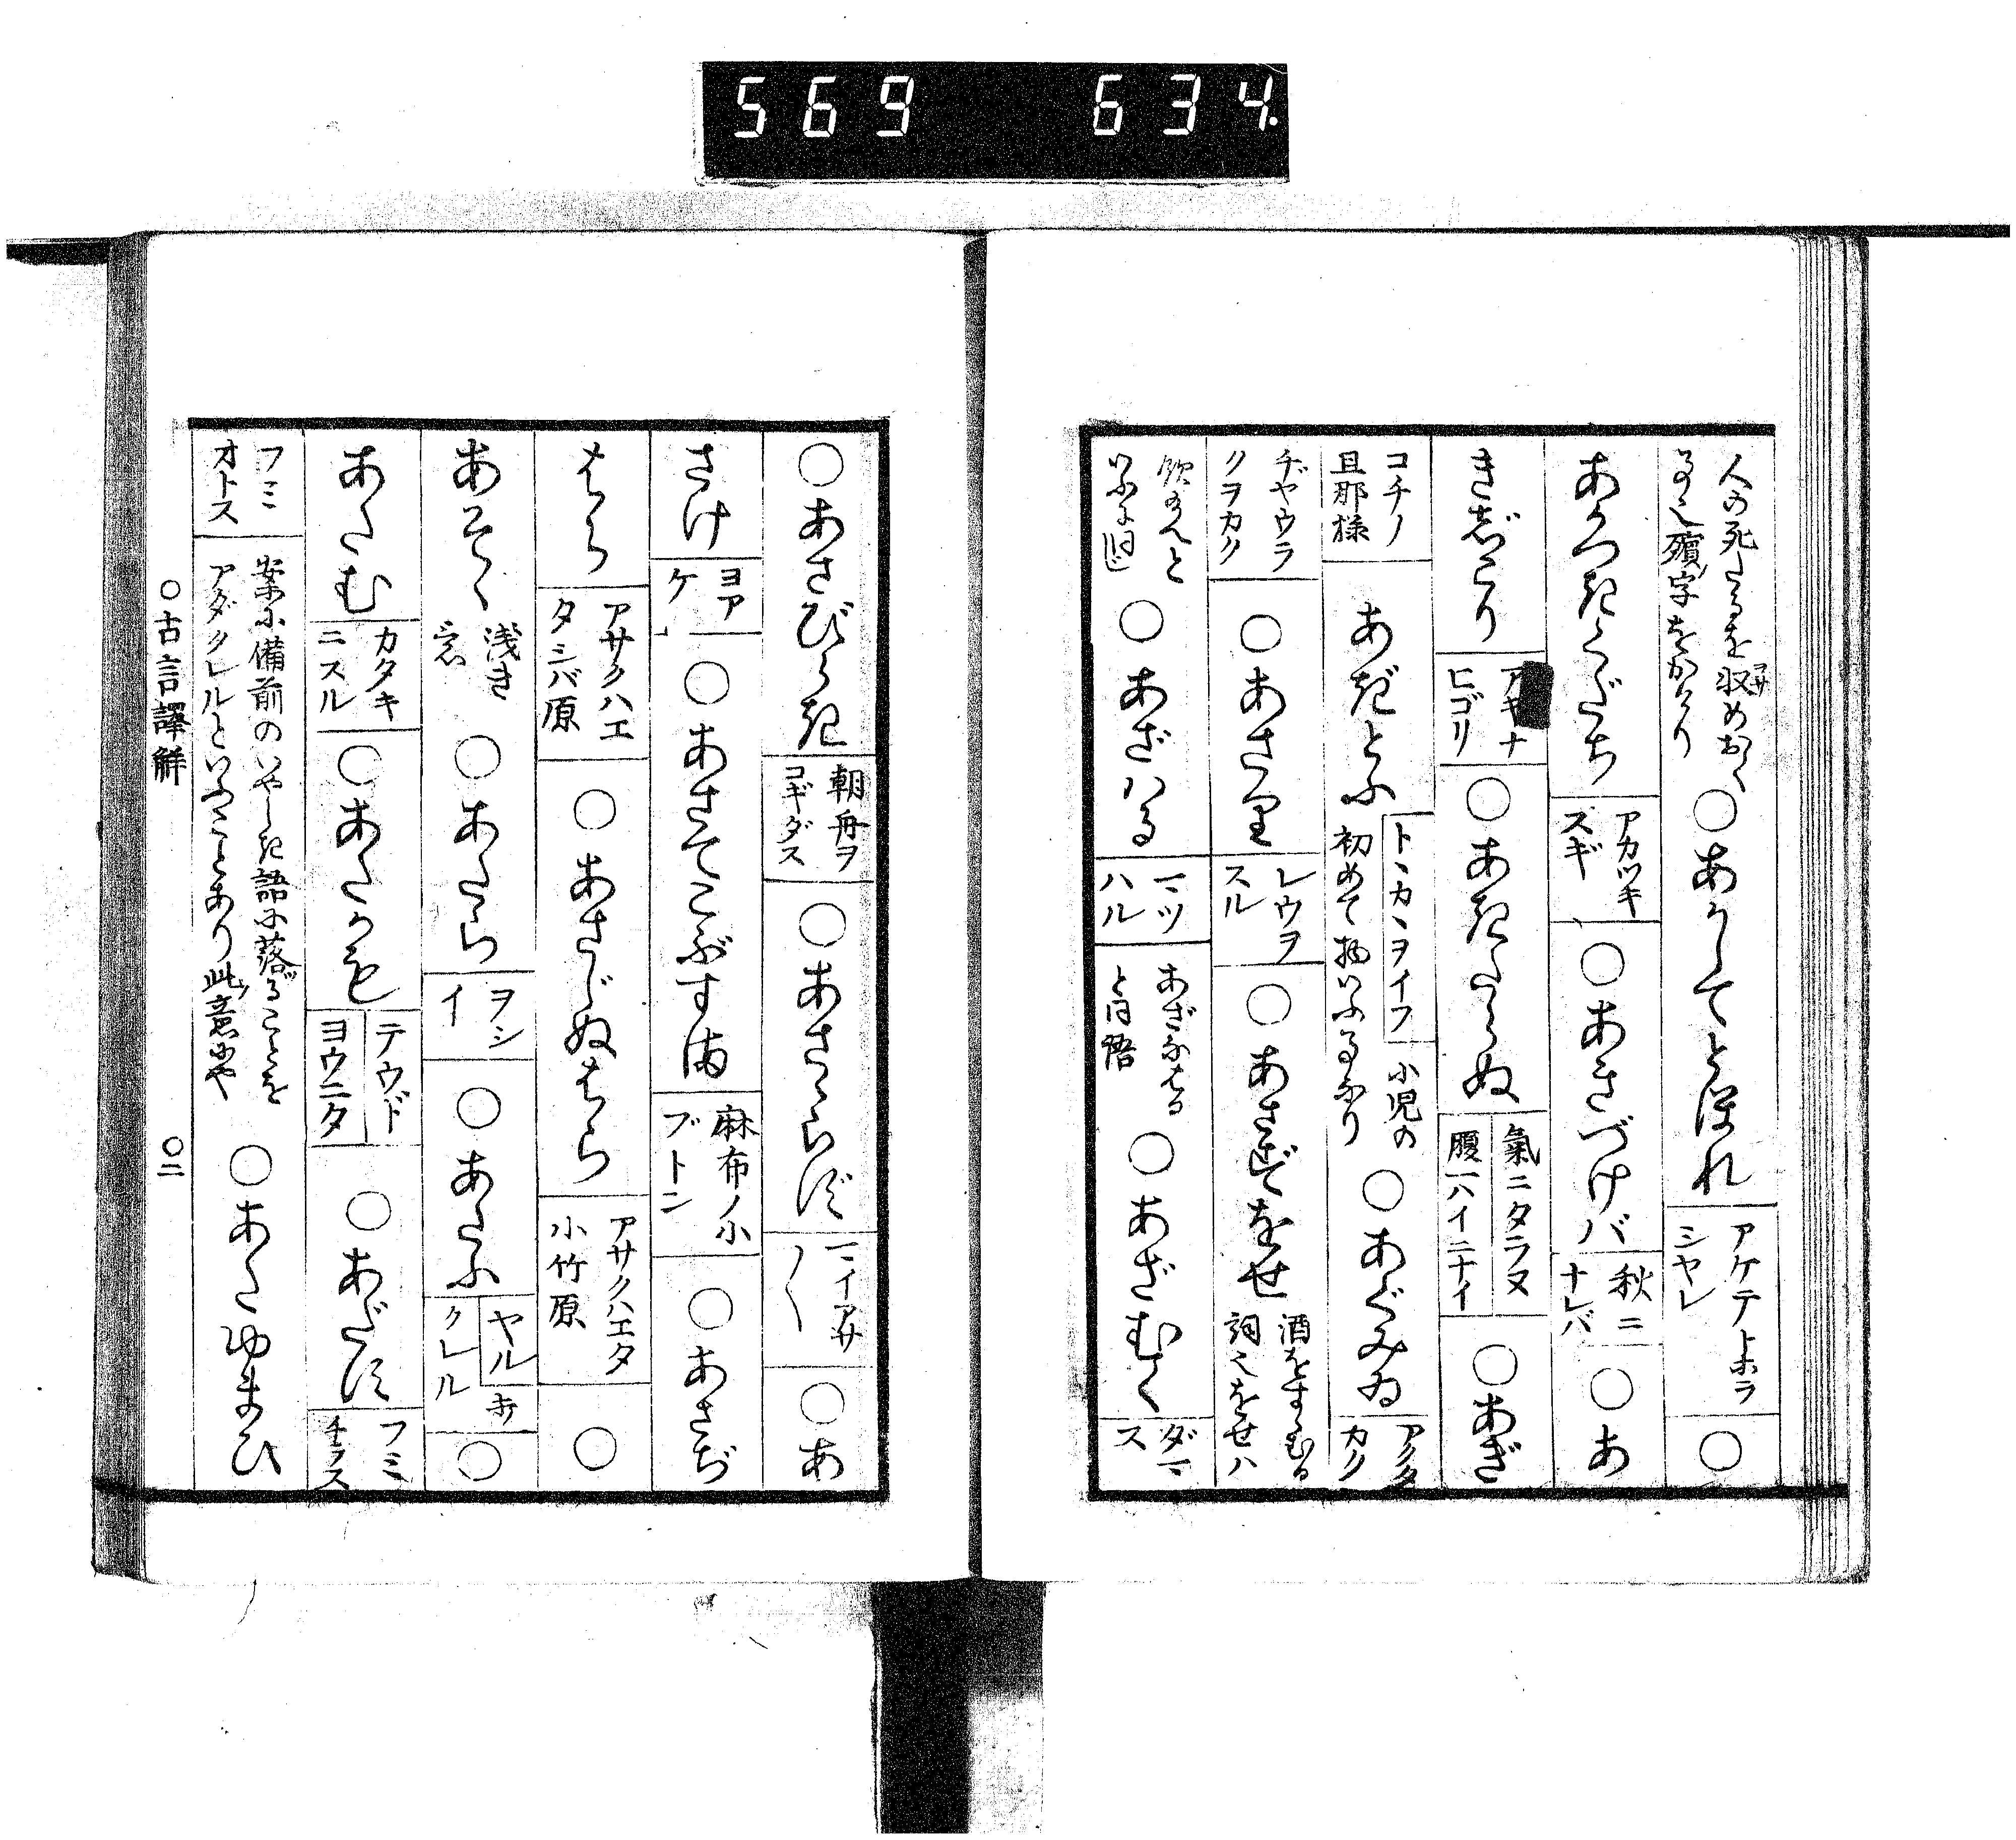 569 634.
人の死たるを収めおく
る也殯ノ字をかけり
○あかしてとほれ
アケテトホラ
シヤレ
○
あかつきくだち
アカツキ
スギ
○あきづけバ
秋ニ
ナレバ
○あ
きじこり
アキナ
ヒゴリ
○あきたらぬ
氣ニタラヌ
腹一ハイニナイ
○あぎ
コチノ
旦那様
あぎとふ
トヽカヽヲイフ
小児の
初めて物いふるなり
○あぐみゐ
アクタ
カク
ヂヤウラ
クヲカク
○あさり
レウヲ
スル
○あさずをせ
酒をすゝむる
詞也をせハ
飲めと
いふに同じ
○あざハる
マツ
ハル
あざなはる
と同語
○あざむく
ダマ
ス
○あさびらき
朝舟ヲ
コギダス
○あさらず
マイアサ
〱
○あ
さけ
ヨア
ケ
○あさてこぶすま
麻布ノ小
ブトン
○あさぢ
はら
アサクハエ
タシバ原
○あさじぬはら
アサクハエタ
小竹原
○
あそゝ
浅き
意
○あたら
ヲシ
イ
○あたふ
ヤル
クレル
○
あたむ
カタキ
ニスル
○あたかも
テウド
ヨウニタ
○あだす
フミ
チラス
フミ
オトス
案に備前のいやしき語に落ることを
アダクレルといふことあり此ノ意にや
○あたゆまひ
○古言譯解
○二